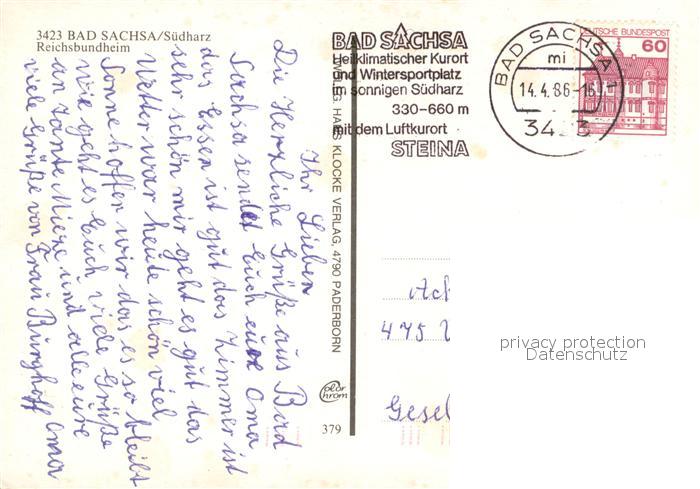 3423 BAD SACHSA/Südharz
Reichsbundheim
BAD SACHSA
Heilklimatischer Kurort
und Wintersportplatz
im sonnigen Südharz
330-660 m
mit dem Luftkurort
STEINA
BAD SACHSA 1
mi
14.4.86-16
3423
DEUTSCHE BUNDESPOST
60
Ihr Lieben
Die Herzliche Grüße aus Bad
Sachsa sendet Euch eure Oma
das Essen ist gut das Zimmer ist
sehr schön mir geht es gut das
Wetter war heute schön viel
Sonne hoffen wir das es so bleibt
wie geht es Euch viele Grüße
an Tante Mieze und alle eure
Oma
viele Grüße von Frau Burghoff
HANS KLOCKE VERLAG, 4790 PADERBORN
color
chrom
379
475
Gesel
privacy protection
Datenschutz